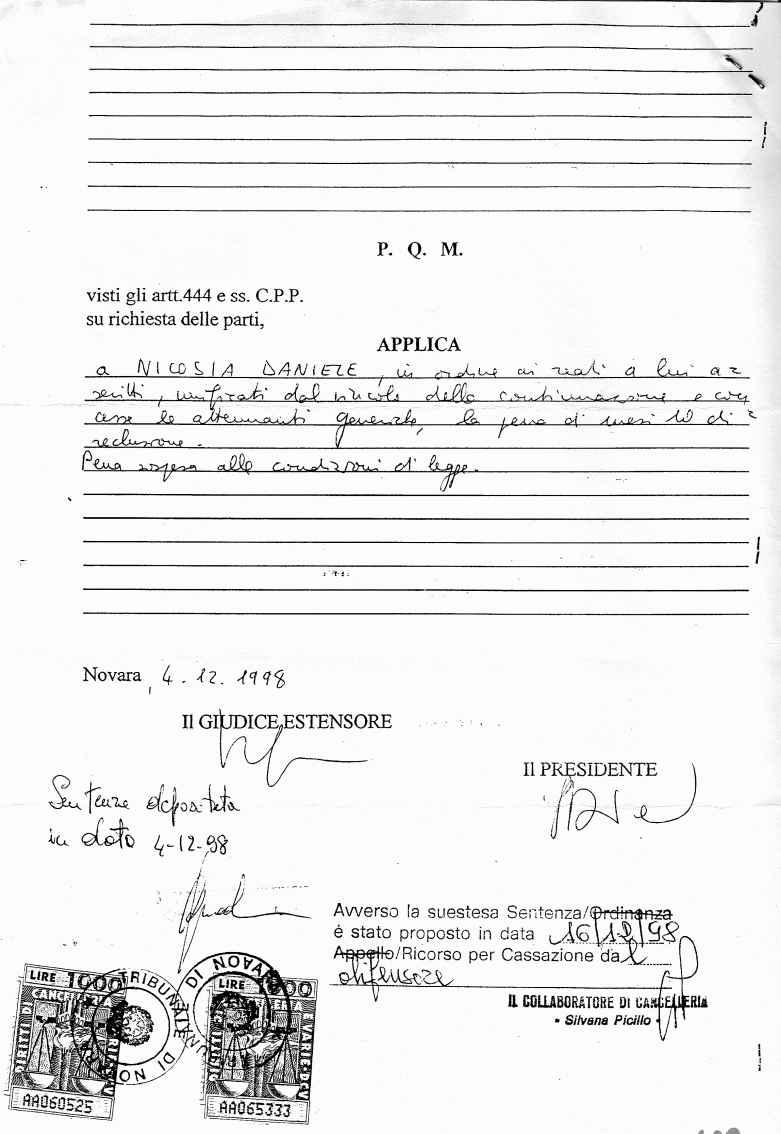 P. Q. M.
visti gli artt.444 e ss. C.P.P.
su richiesta delle parti,
APPLICA
a NICOSIA DANIELE, in ordine ai reati a lui a=
scritti, unificati dal vincolo della continuazione e con
cesse le attenuanti generiche, la pena di mesi 10 di
reclusione.
Pena sospesa alle condizioni di legge.
Novara, 4.12.1998
Il GIUDICE ESTENSORE
Il PRESIDENTE
Sentenza depositata
in data 4-12-98
Avverso la suestesa Sentenza/Ordinanza
é stato proposto in data 16/12/98
Appello/Ricorso per Cassazione dal
difensore
IL COLLABORATORE DI CANCELLERIA
• Silvana Picillo •
LIRE 1000
TRIBUNALE DI NOVARA
LIRE 1000
AA060525
AA065333